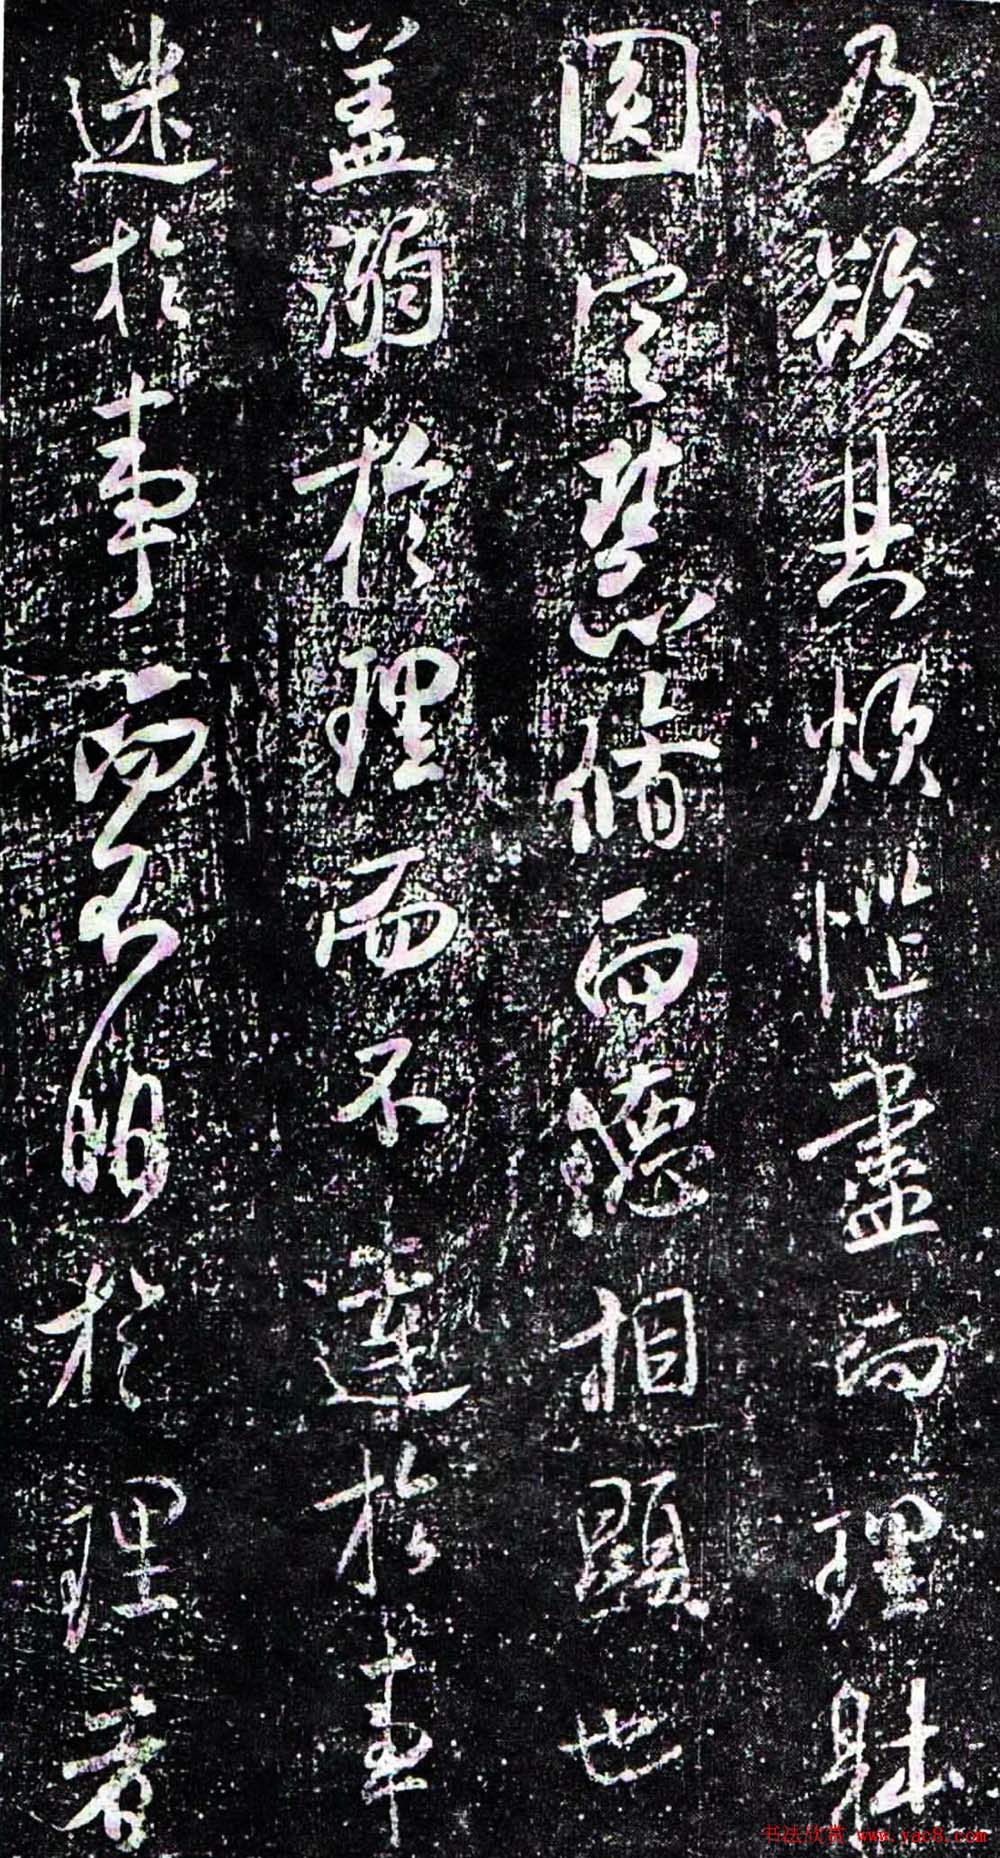 乃欲其煩惱盡而理財
圓定慧脩而德相顯也
蓋溺於理而不達於事
迷於事而不明於理者
书法欣赏 www.yac8.com